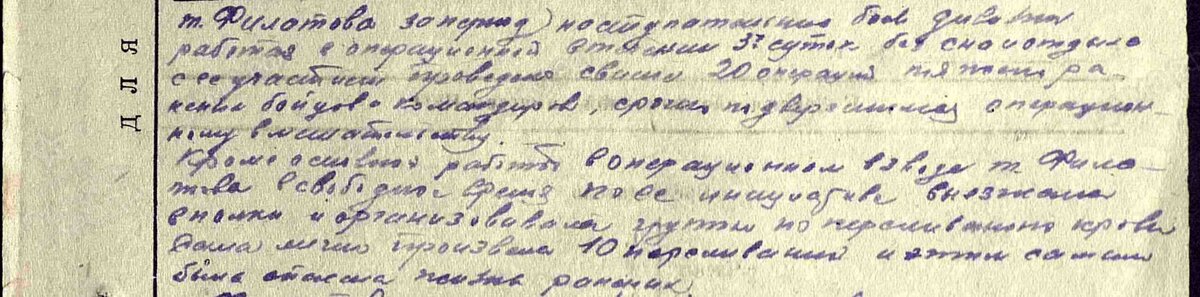 для
т. Филатова за период наступательных боев дивизии
работая в операционной в течении 3х суток без сна и отдыха
с ее участием проведено свыше 20 операций тяжело ра-
неных бойцов и командиров, срочно подвергшихся операцион-
ному вмешательству.
Кроме основной работы в операционном взводе т. Фила-
това в свободное время по ее инициативе выезжала
в полки и организовывала группы по переливанию крови
сама лично произвела 10 переливаний и этим самым
была спасена жизнь раненых